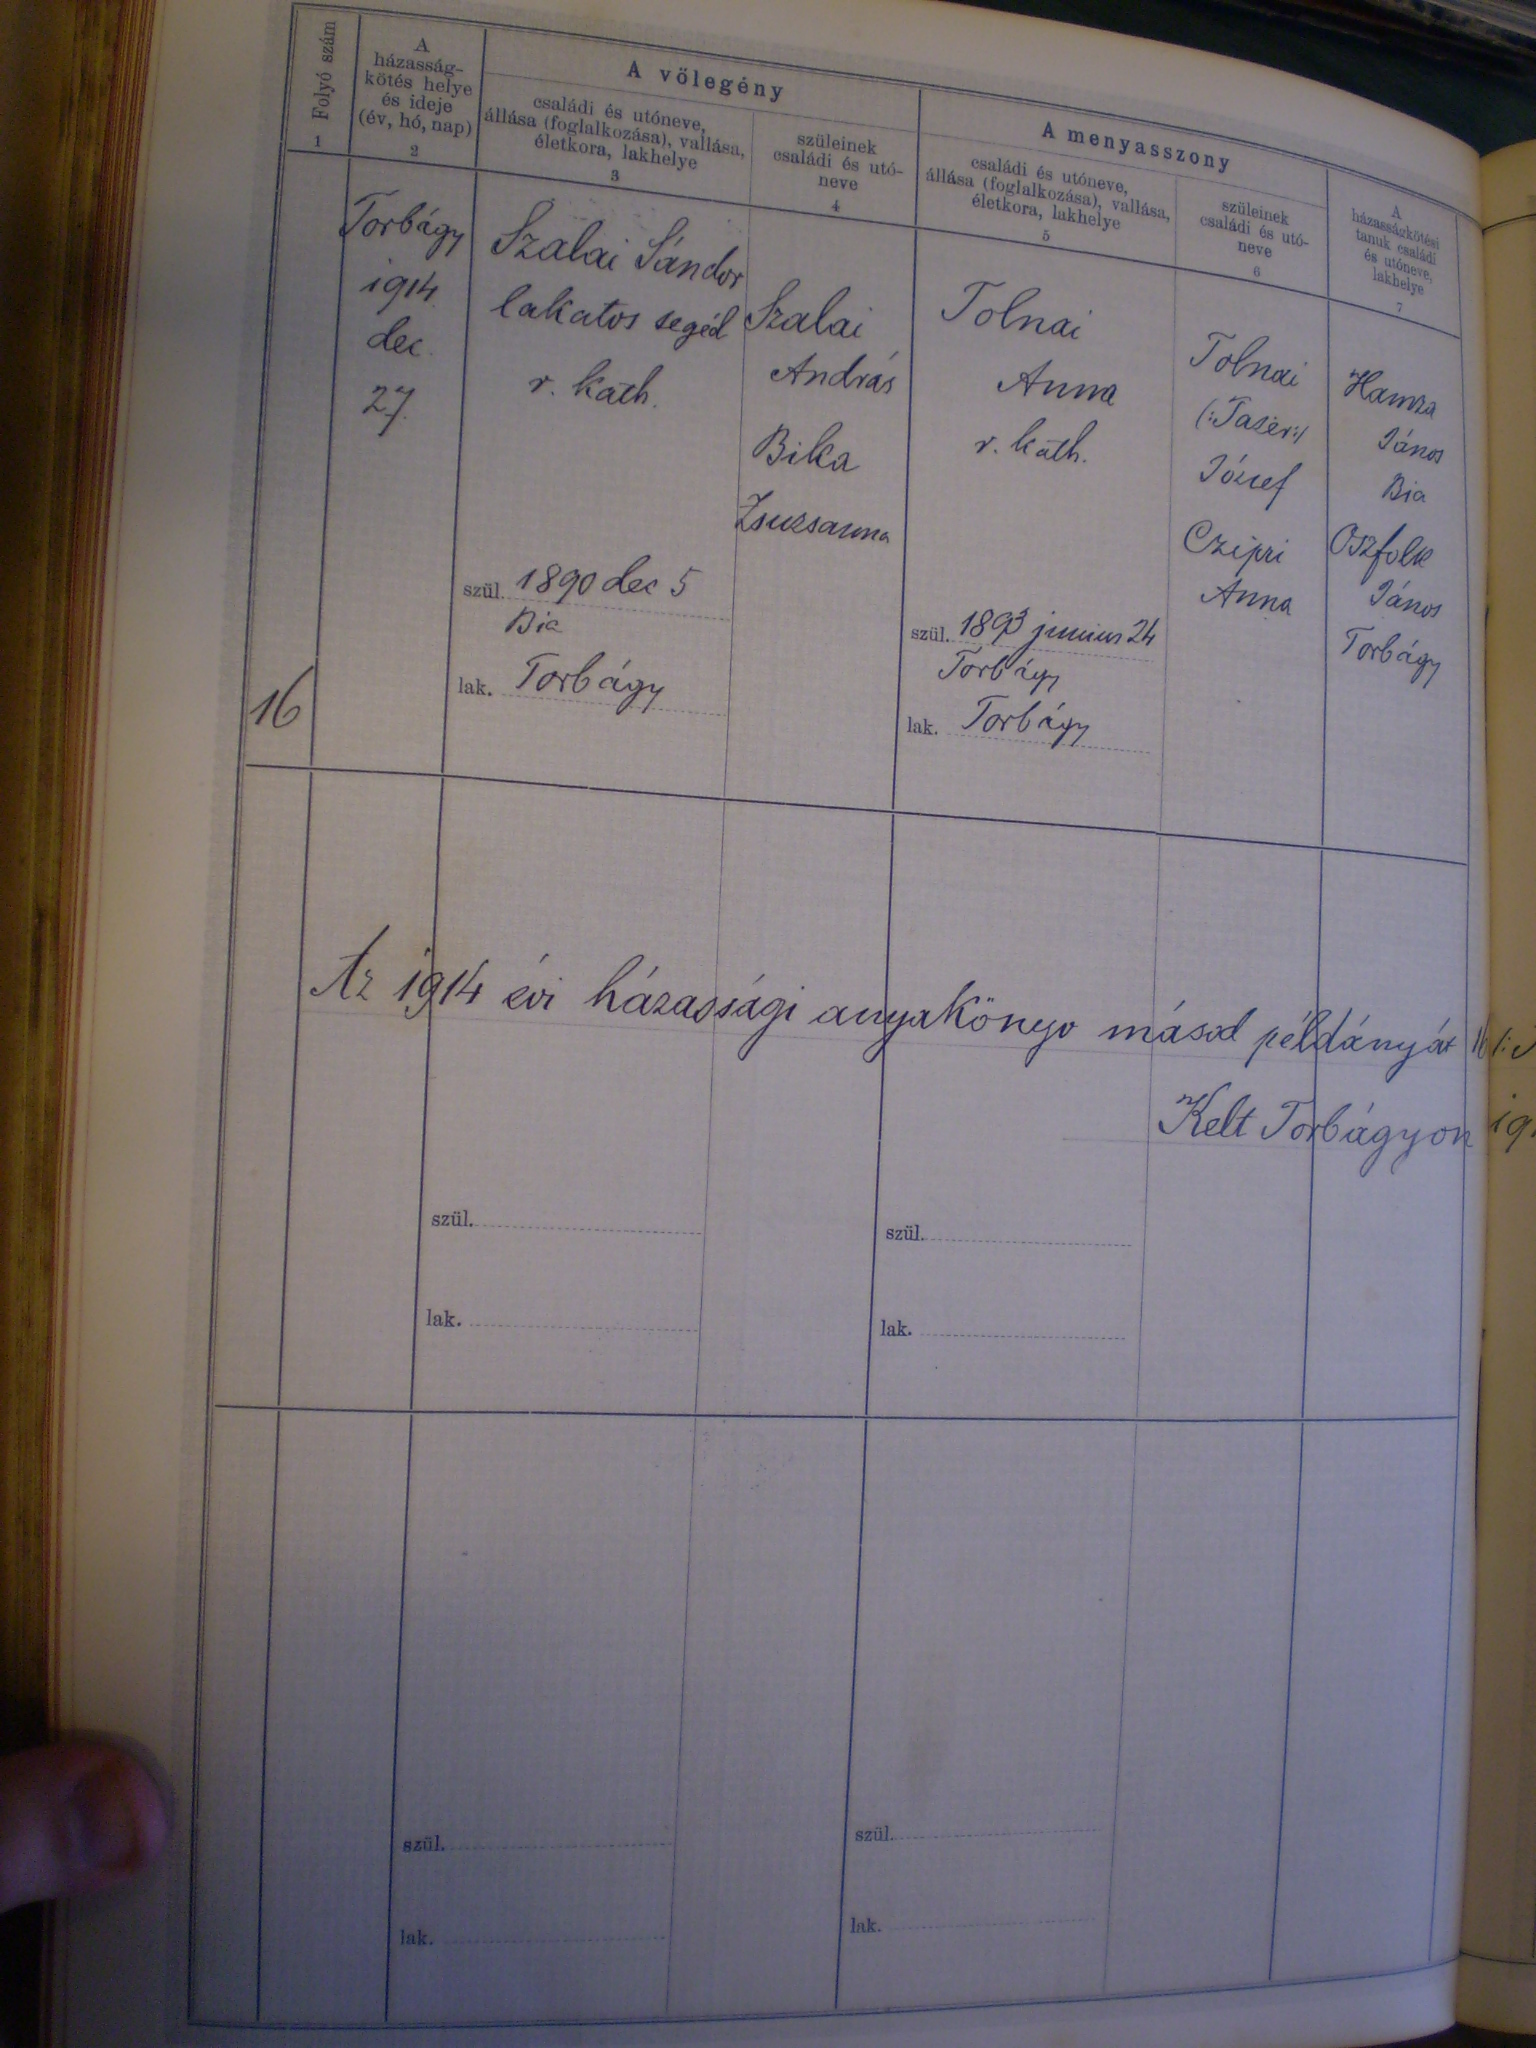 Folyó szám
1
A
házasság-
kötés helye
és ideje
(év, hó, nap)
2
A vőlegény
családi és utóneve,
állása (foglalkozása), vallása,
életkora, lakhelye
3
szüleinek
családi és utó-
neve
4
A menyasszony
családi és utóneve,
állása (foglalkozása), vallása,
életkora, lakhelye
5
szüleinek
családi és utó-
neve
6
A
házasságkötési
tanuk családi
és utóneve,
lakhelye
7
16
Torbágy
1914
dec.
27.
Szalai Sándor
lakatos segéd
r. kath.
szül. 1890 dec 5
Bia
lak. Torbágy
Szalai
András
Bika
Zsuzsanna
Tolnai
Anna
r. kath.
szül. 1893 junius 24
Torbágy
lak. Torbágy
Tolnai
József
Czipri
Anna
Hamza
János
Bia
Oszfolk
János
Torbágy
Az 1914 évi házassági anyakönyv másod példányát 16
Kelt Torbágyon
szül.
lak.
szül.
lak.
szül.
lak.
szül.
lak.